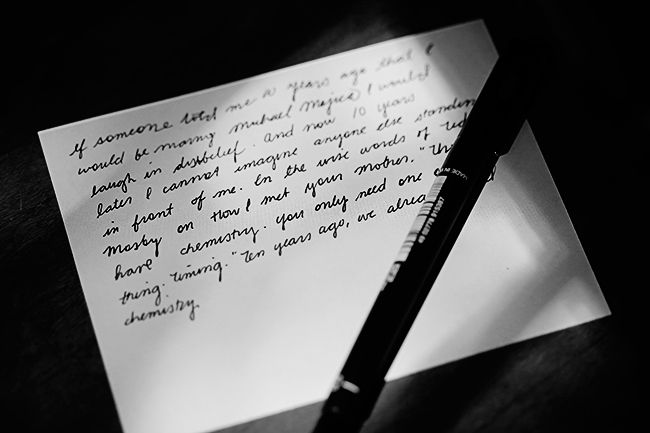 If someone told me 10 years ago that I
would be marry Michael Mojica I would
laugh in disbelief. And now 10 years
later I cannot imagine anyone else standin
in front of me. In the wise words of Ted
Mosby on How I met your mother. "
have chemistry. You only need one
thing. Timing." Ten years ago, we alrea
chemistry